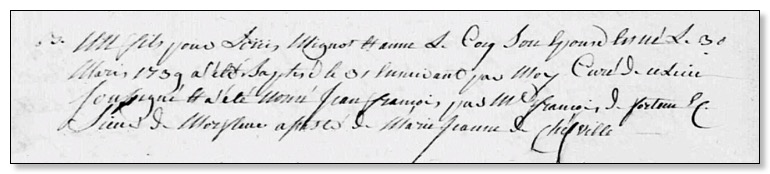 Un fils pour Loüis Mignot et anne Le Coq Son Epouse est né Le 30
Mars 1739 a été baptisé le 31 Suivant par Moy Curé de ce Lieu
Soussigné et a été Nommé Jean françois par Mr françois de
Sieur de assisté de Marie Jeanne de